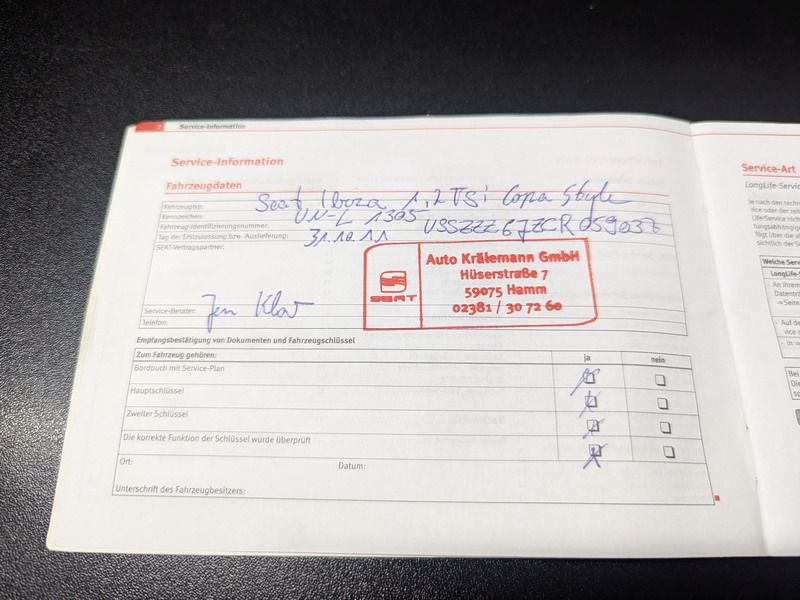 2 Service-Information
Service-Information
Fahrzeugdaten
Fahrzeugtyp: Seat Ibiza 1,2 TSi Copa Style
Kennzeichen: UN-L 1305
Fahrzeug-Identifizierungsnummer: VSSZZZ6JZCR059037
Tag der Erstzulassung bzw. Auslieferung: 31.10.11
SEAT-Vertragspartner:
SEAT
Auto Krälemann GmbH
Hüserstraße 7
59075 Hamm
02381 / 30 72 60
Service-Berater: Jen
Telefon:
Empfangsbestätigung von Dokumenten und Fahrzeugschlüssel
Zum Fahrzeug gehören: ja nein
Bordbuch mit Service-Plan
Hauptschlüssel
Zweiter Schlüssel
Die korrekte Funktion der Schlüssel wurde überprüft
Ort: Datum:
Unterschrift des Fahrzeugbesitzers:
Service-Art
LongLife-Servic
Je nach den techn
vice oder der zeit
Life-Service nicht
tungsabhängig
fügt über die a
sichtlich der Se
Welche Serv
LongLife-
An Ihrem
Datenträ
⇒ Seite
Auf de
vice a
In ⇒
Bei
Die
sp